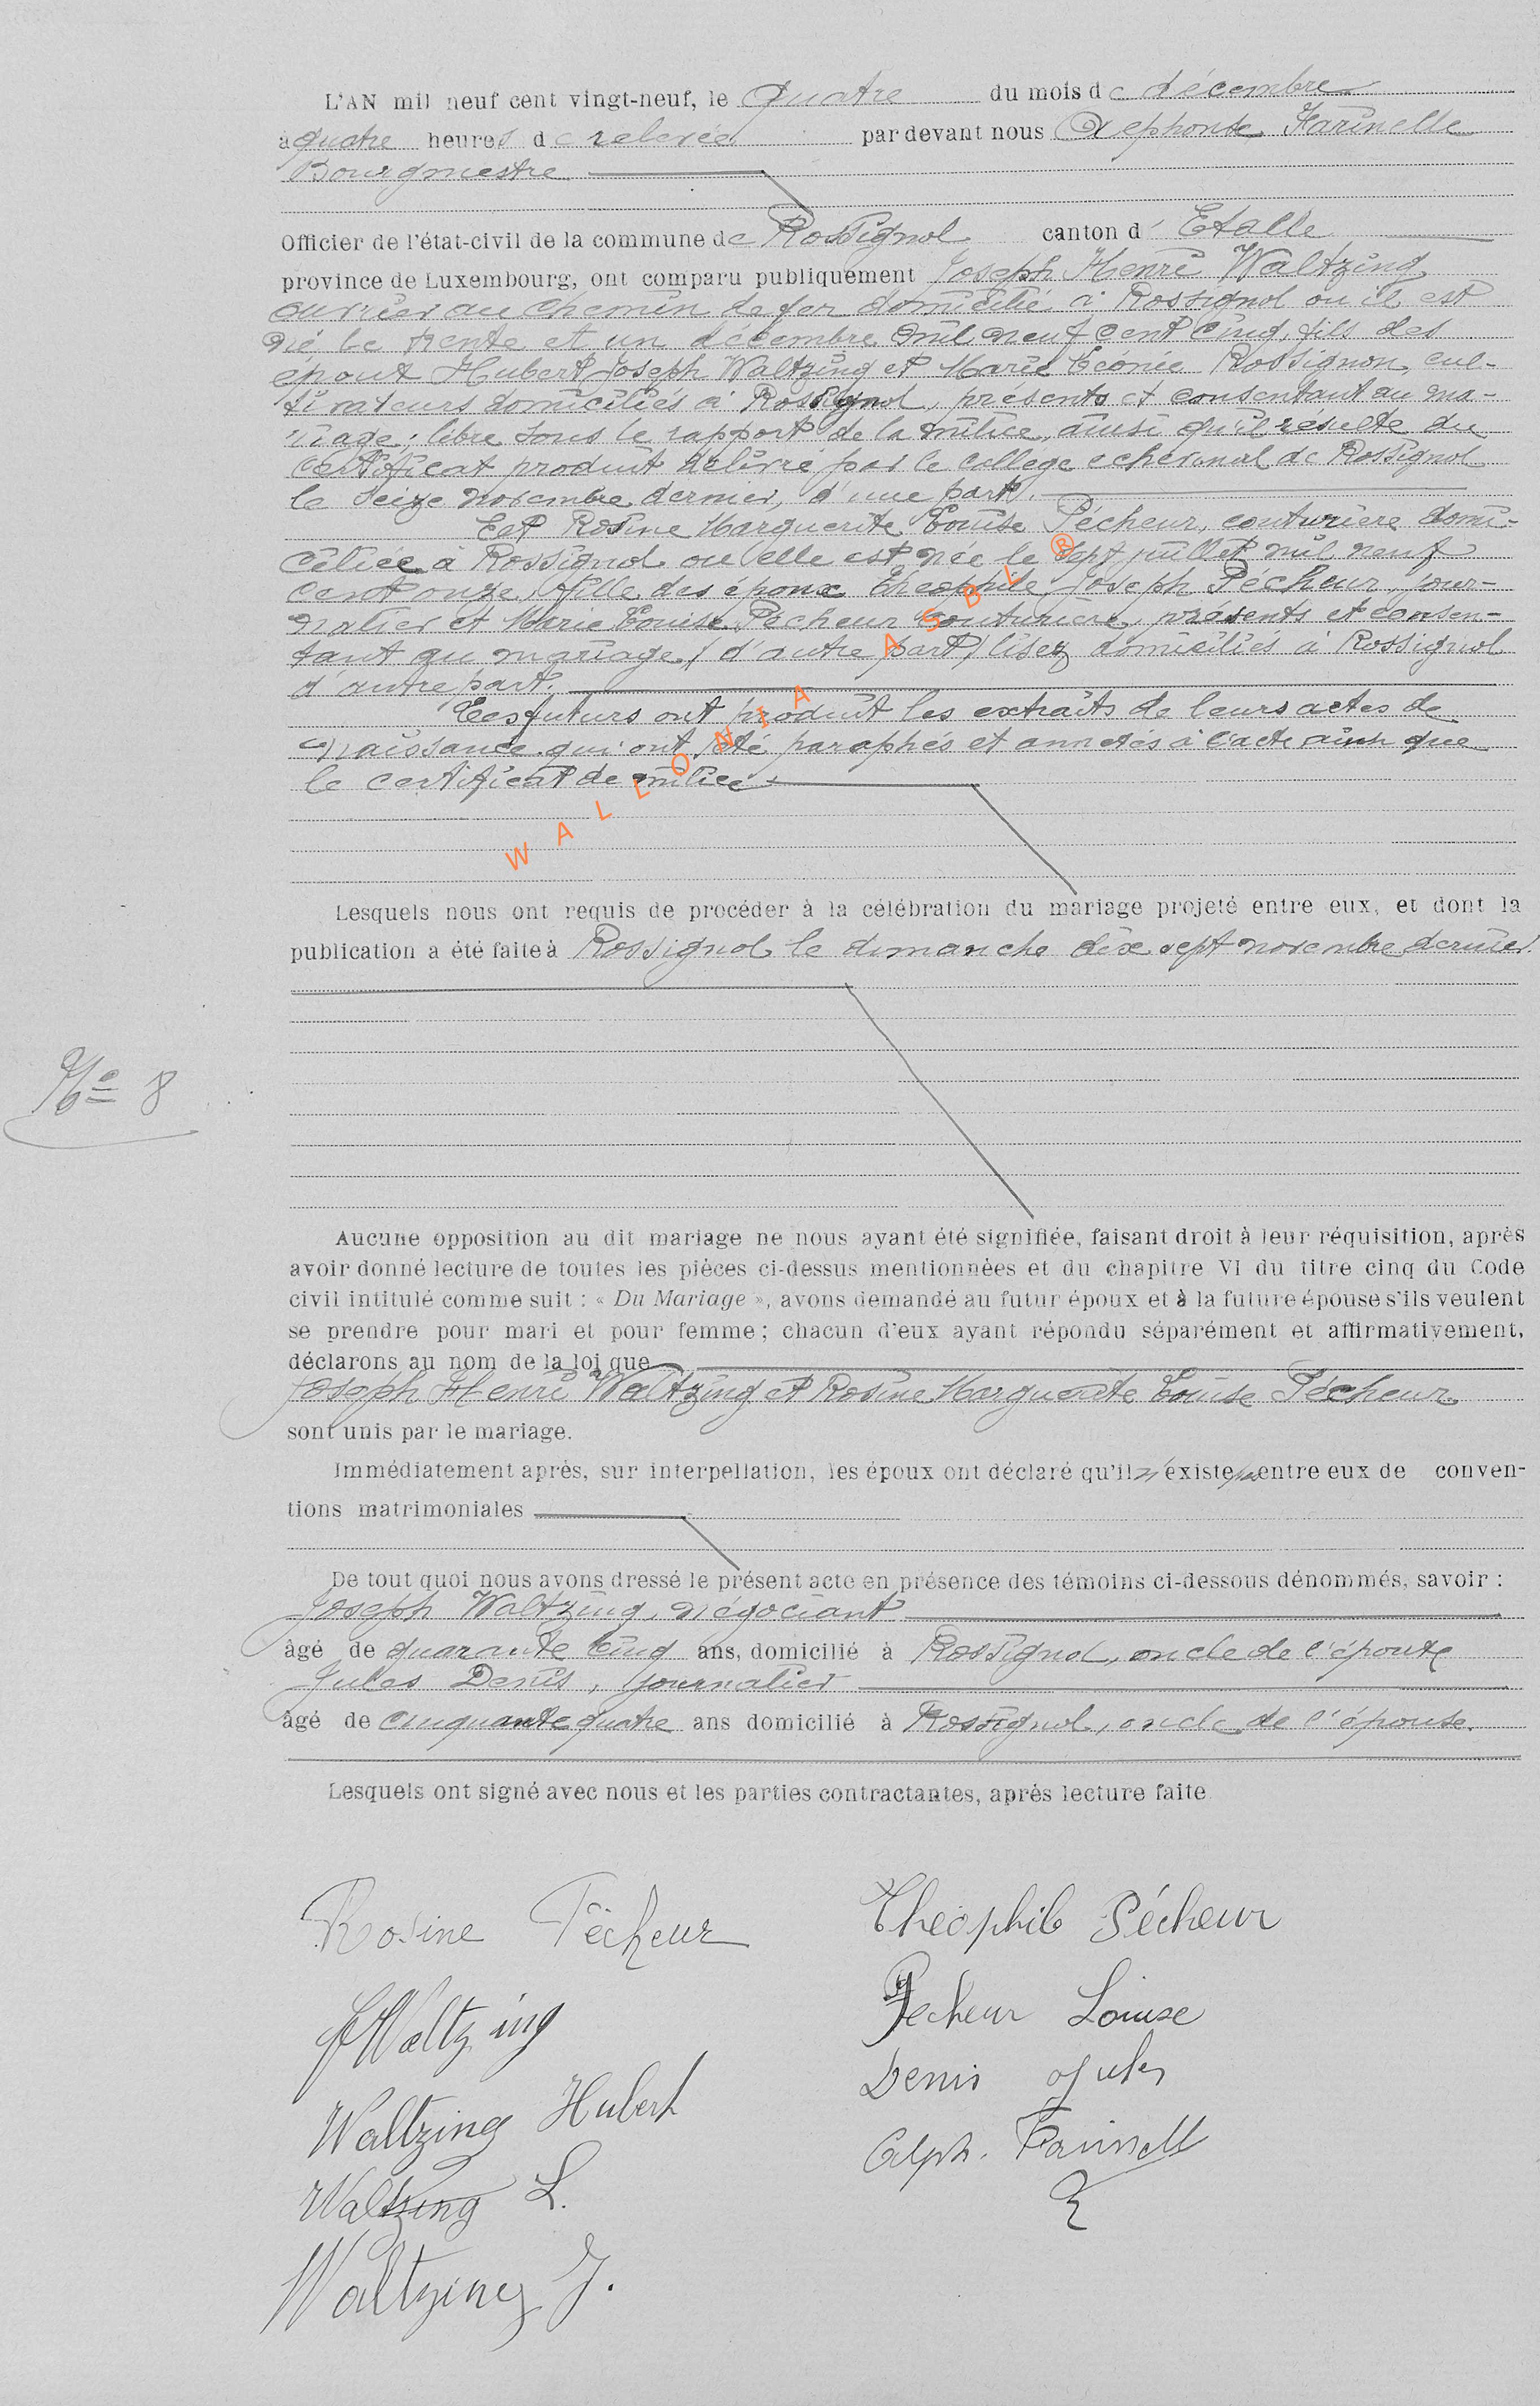 L'AN mil neuf cent vingt-neuf, le quatre du mois de décembre
à quatre heures de relevée par devant nous Alphonse Farinelle
Bourgmestre
Officier de l'état-civil de la commune de Rossignol canton d' Etalle
province de Luxembourg, ont comparu publiquement Joseph Henri Waltzing
ouvrier au chemin de fer domicilié à Rossignol où il est
né le trente et un décembre mil neuf cent cinq, fils des
époux Hubert Joseph Waltzing et Marie Léonie Rossignon, cul-
tivateurs domiciliés à Rossignol, présents et consentant au ma-
riage; libre sous le rapport de la milice, ainsi qu'il résulte du
certificat produit délivré par le collège echevinal de Rossignol
le seize novembre dernier, d'une part.
Et Rosine Marguerite Louise Pécheur, couturière domi-
ciliée à Rossignol où elle est née le sept juillet mil neuf
cent onze, fille des époux Théophile Joseph Pécheur, jour-
nalier et Marie Louise Pécheur couturière, présents et consen-
tant au mariage, / d'autre part / lisez domiciliés à Rossignol
d'autre part.
Les futurs ont produit les extraits de leurs actes de
naissance qui ont été paraphés et annexés à l'acte ainsi que
le certificat de milice
WALLONIA ASBL ®
Lesquels nous ont requis de procéder à la célébration du mariage projeté entre eux, et dont la
publication a été faite à Rossignol le dimanche dix sept novembre dernier.
No 8
Aucune opposition au dit mariage ne nous ayant été signifiée, faisant droit à leur réquisition, après
avoir donné lecture de toutes les pièces ci-dessus mentionnées et du chapitre VI du titre cinq du Code
civil intitulé comme suit : « Du Mariage », avons demandé au futur époux et à la future épouse s'ils veulent
se prendre pour mari et pour femme ; chacun d'eux ayant répondu séparément et affirmativement,
déclarons au nom de la loi que
Joseph Henri Waltzing et Rosine Marguerite Louise Pécheur
sont unis par le mariage.
Immédiatement après, sur interpellation, les époux ont déclaré qu'il n'existe pas entre eux de conven-
tions matrimoniales
De tout quoi nous avons dressé le présent acte en présence des témoins ci-dessous dénommés, savoir :
Joseph Waltzing, négociant
âgé de quarante cinq ans, domicilié à Rossignol, oncle de l'époux
Jules Denis, journalier
âgé de cinquante quatre ans domicilié à Rossignol, oncle de l'épouse.
Lesquels ont signé avec nous et les parties contractantes, après lecture faite
Rosine Pêcheur
Théophile Pécheur
JWaltzing
Pecheur Louise
Waltzing Hubert
Denis Jules
Waltzing L.
Alph. Farinelle
Waltzing J.